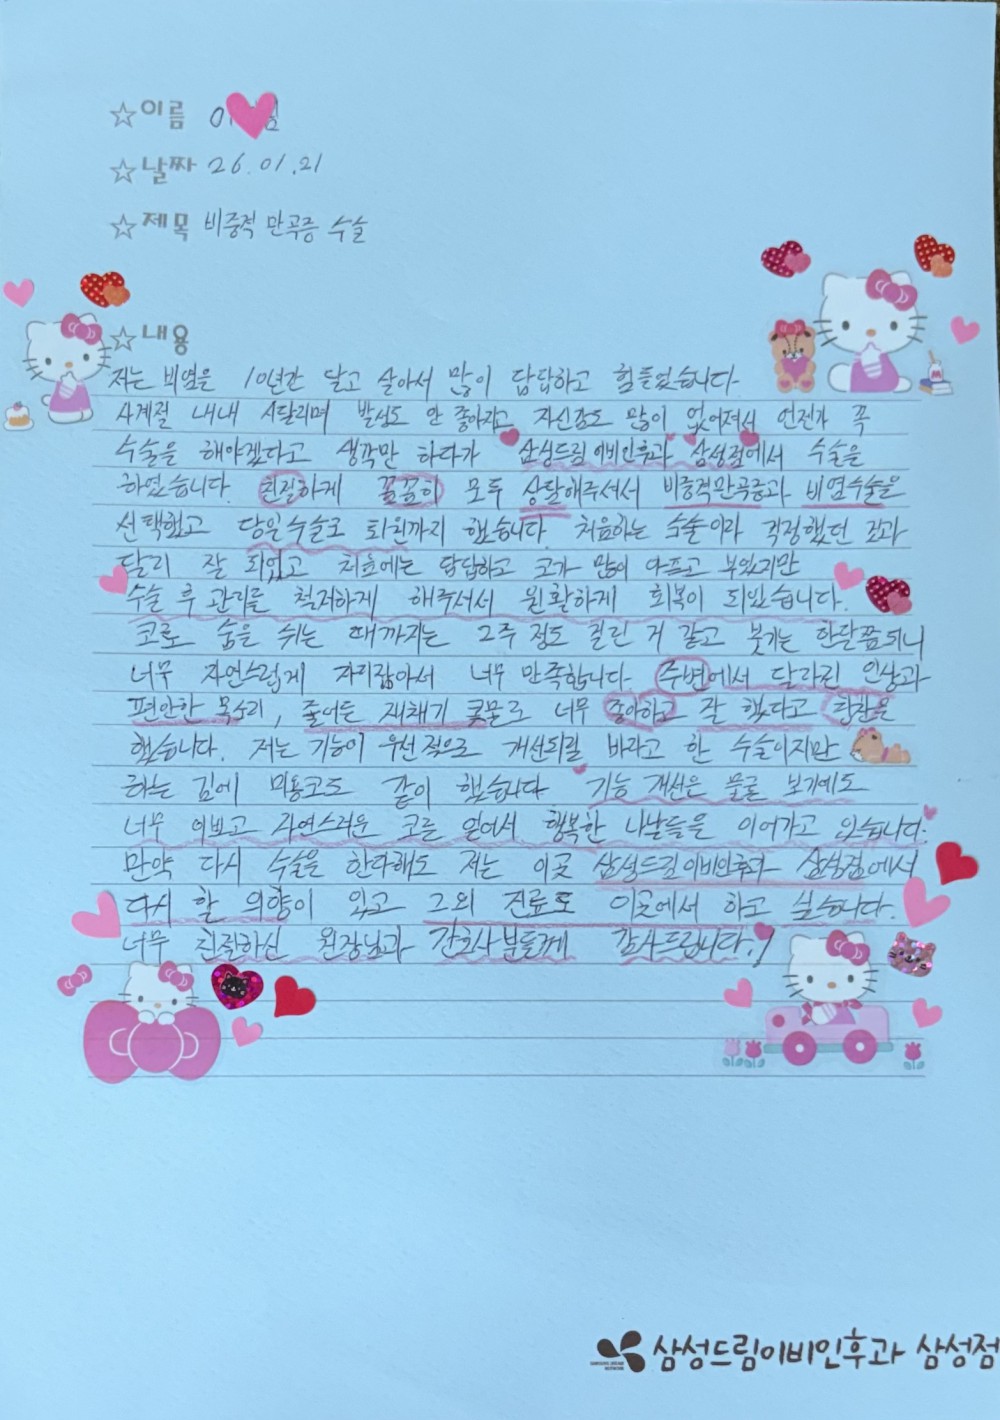 ☆이름 이 님
☆날짜 26.01.21
☆제목 비중적 만곡증 수술
☆내용
저는 비염을 10년간 달고 살아서 많이 답답하고 힘들었습니다.
사계절 내내 시달리며 발성도 안 좋아지고 자신감도 많이 없어져서 언젠가 꼭
수술을 해야겠다고 생각만 하다가 삼성드림이비인후과 삼성점에서 수술을
하였습니다. 친절하게 꼼꼼히 모두 상담해주셔서 비중적만곡증과 비염수술을
선택했고 당일수술로 퇴원까지 했습니다. 처음하는 수술이라 걱정했던 것과
달리 잘 되었고 처음에는 답답하고 코가 많이 아프고 부었지만
수술 후 관리를 철저하게 해주셔서 원활하게 회복이 되었습니다.
코로 숨을 쉬는 때까지는 2주 정도 걸린 거 같고 붓기는 한달쯤되니
너무 자연스럽게 자리잡아서 너무 만족합니다. 주변에서 달라진 인상과
편안한 목소리, 줄어든 재채기 콧물로 너무 좋아하고 잘 했다고 칭찬을
했습니다. 저는 기능이 우선적으로 개선되길 바라고 한 수술이지만
하는 김에 미용코도 같이 했습니다. 기능 개선은 물론 보기에도
너무 이쁘고 자연스러운 코를 얻어서 행복한 나날들을 이어가고 있습니다.
만약 다시 수술을 한다해도 저는 이곳 삼성드림이비인후과 삼성점에서
다시 할 의향이 있고 그외 진료도 이곳에서 하고 싶습니다.
너무 친절하신 원장님과 간호사분들께 감사드립니다.!
삼성드림이비인후과 삼성점